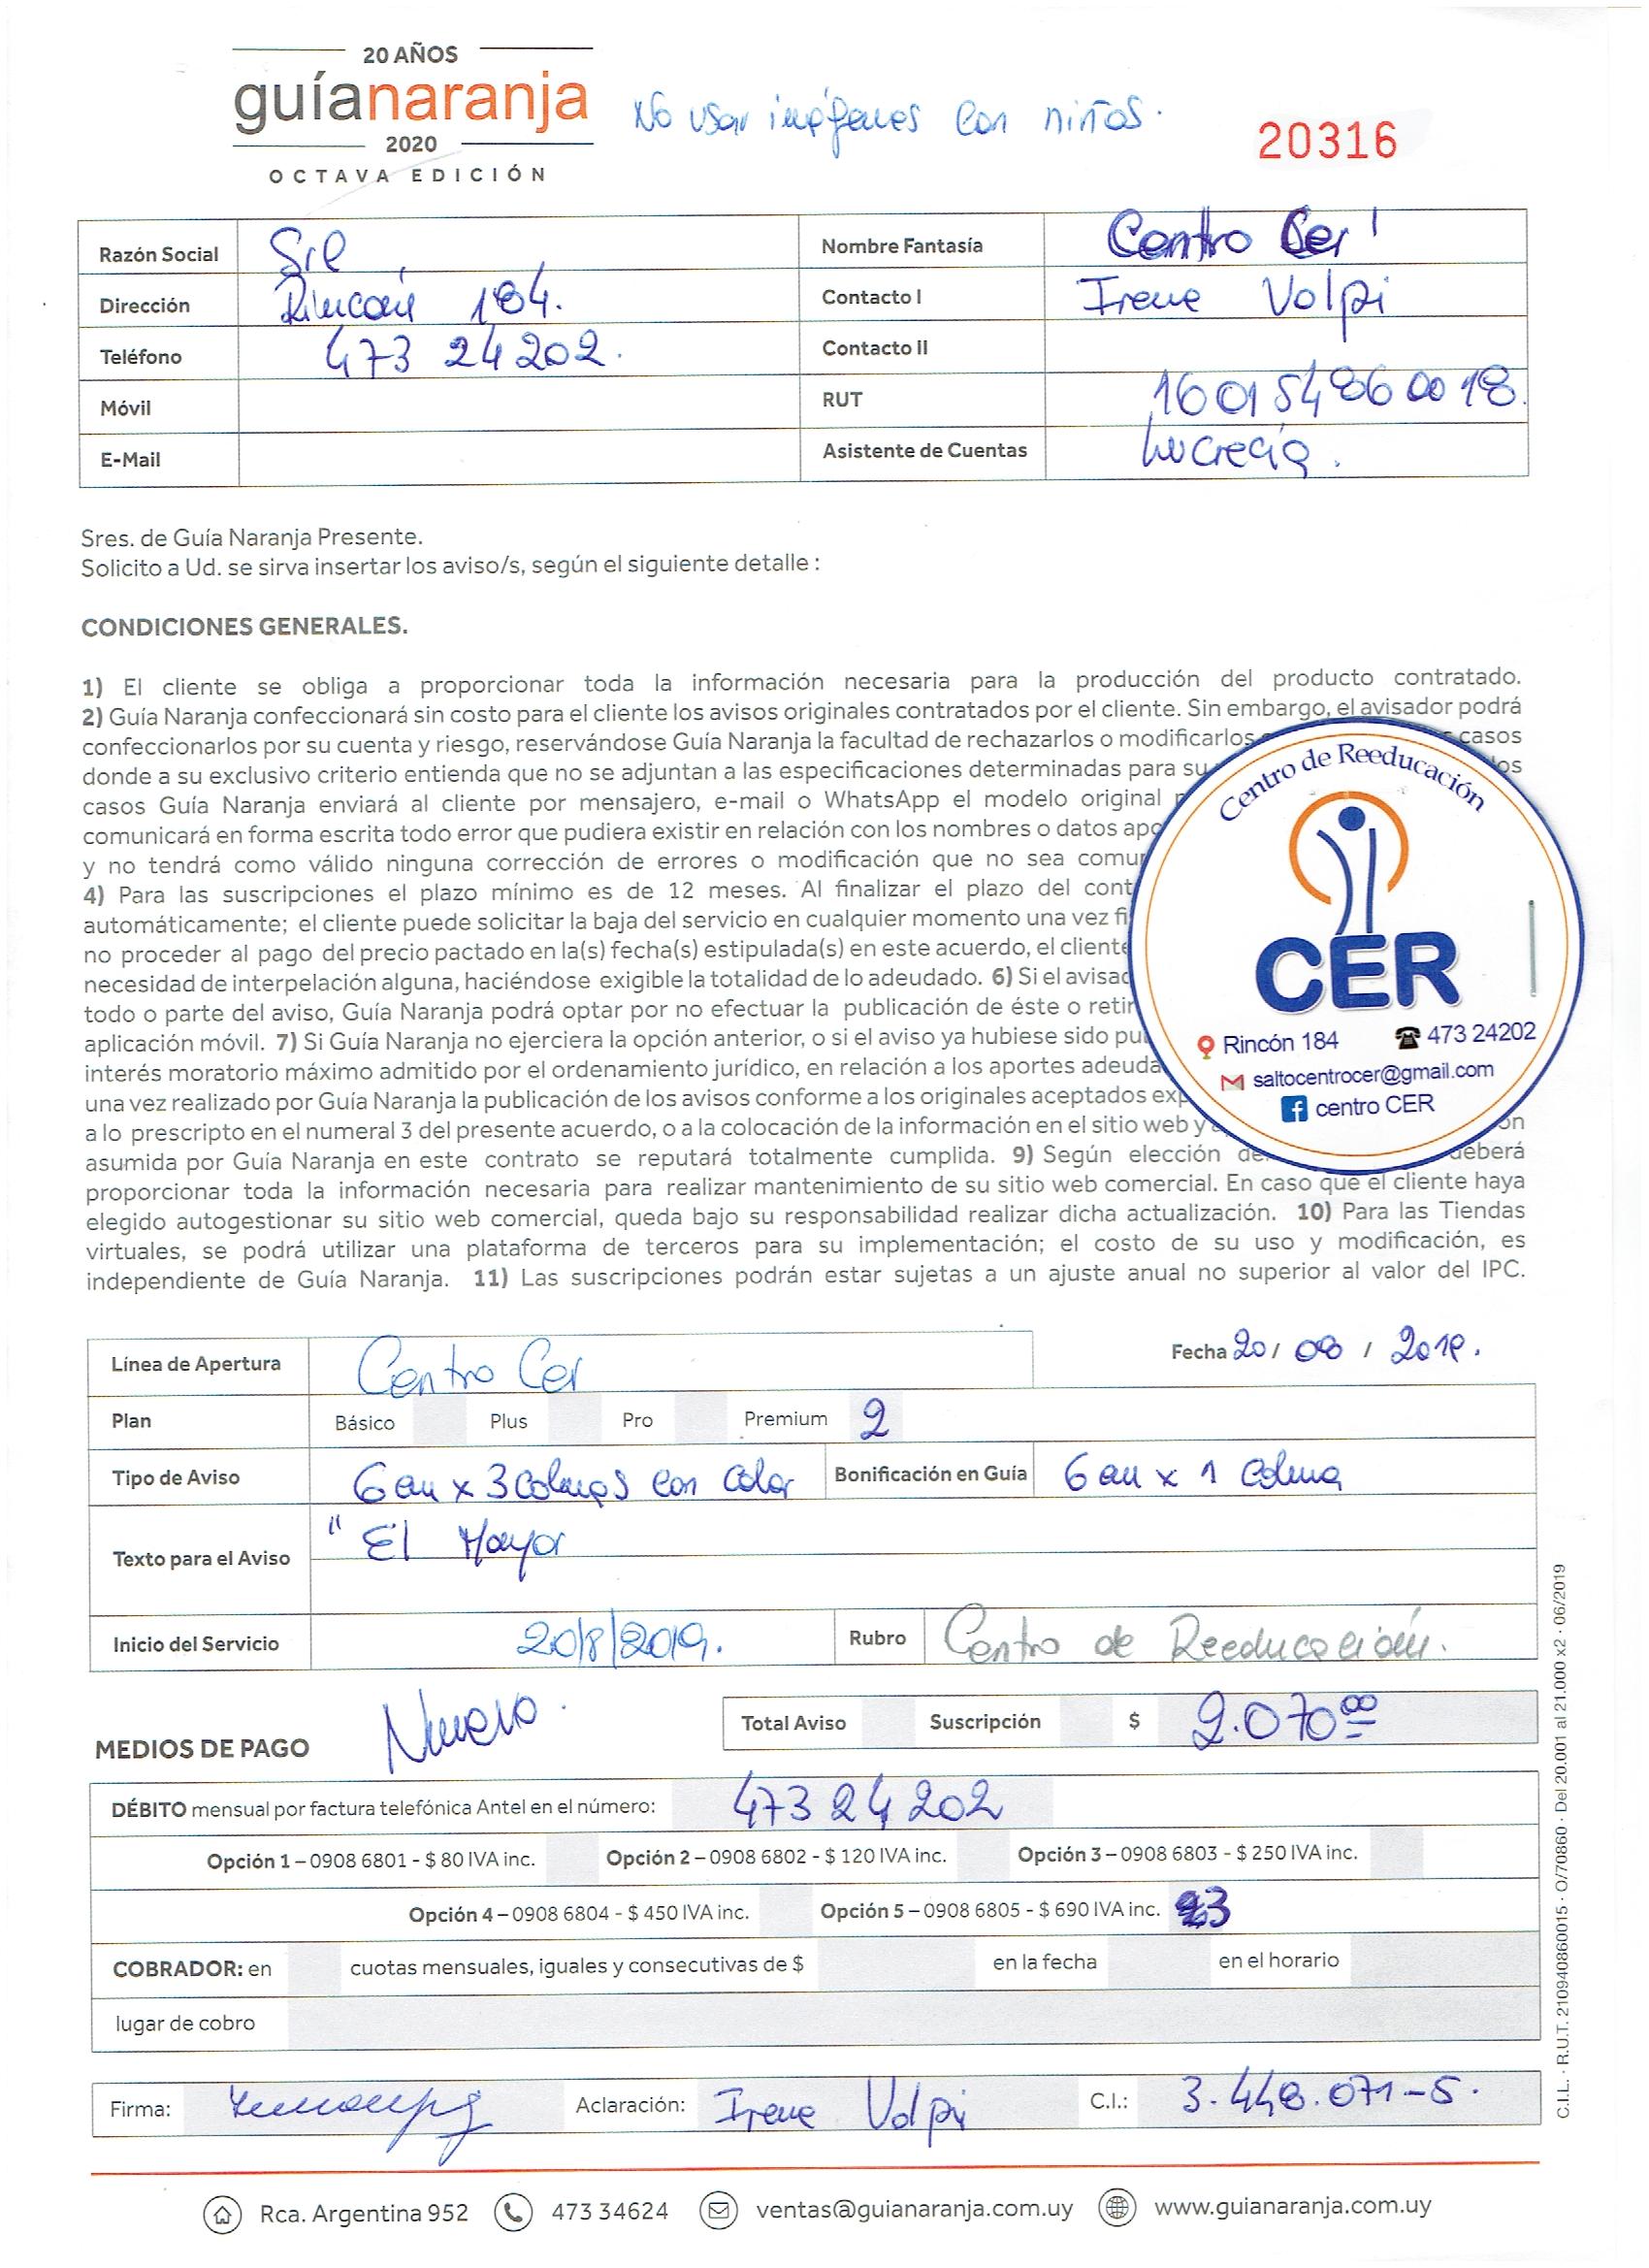 20 AÑOS
guíanaranja
2020
OCTAVA EDICIÓN
No usar imágenes con niños.
20316
Razón Social Srl Nombre Fantasía Centro Cer
Dirección Rincón 184. Contacto I Irene Volpi
Teléfono 473 24202. Contacto II
Móvil RUT 160154860018.
E-Mail Asistente de Cuentas Lucrecia.
Sres. de Guía Naranja Presente.
Solicito a Ud. se sirva insertar los aviso/s, según el siguiente detalle :
CONDICIONES GENERALES.
1) El cliente se obliga a proporcionar toda la información necesaria para la producción del producto contratado.
2) Guía Naranja confeccionará sin costo para el cliente los avisos originales contratados por el cliente. Sin embargo, el avisador podrá
confeccionarlos por su cuenta y riesgo, reservándose Guía Naranja la facultad de rechazarlos o modificarlos casos
donde a su exclusivo criterio entienda que no se adjuntan a las especificaciones determinadas para su
casos Guía Naranja enviará al cliente por mensajero, e-mail o WhatsApp el modelo original
comunicará en forma escrita todo error que pudiera existir en relación con los nombres o datos apo
y no tendrá como válido ninguna corrección de errores o modificación que no sea comu
4) Para las suscripciones el plazo mínimo es de 12 meses. Al finalizar el plazo del cont
automáticamente; el cliente puede solicitar la baja del servicio en cualquier momento una vez fi
no proceder al pago del precio pactado en la(s) fecha(s) estipulada(s) en este acuerdo, el cliente
necesidad de interpelación alguna, haciéndose exigible la totalidad de lo adeudado. 6) Si el avisad
todo o parte del aviso, Guía Naranja podrá optar por no efectuar la publicación de éste o retir
aplicación móvil. 7) Si Guía Naranja no ejerciera la opción anterior, o si el aviso ya hubiese sido pu
interés moratorio máximo admitido por el ordenamiento jurídico, en relación a los aportes adeuda
una vez realizado por Guía Naranja la publicación de los avisos conforme a los originales aceptados exp
a lo prescripto en el numeral 3 del presente acuerdo, o a la colocación de la información en el sitio web y
asumida por Guía Naranja en este contrato se reputará totalmente cumplida. 9) Según elección de deberá
proporcionar toda la información necesaria para realizar mantenimiento de su sitio web comercial. En caso que el cliente haya
elegido autogestionar su sitio web comercial, queda bajo su responsabilidad realizar dicha actualización. 10) Para las Tiendas
virtuales, se podrá utilizar una plataforma de terceros para su implementación; el costo de su uso y modificación, es
independiente de Guía Naranja. 11) Las suscripciones podrán estar sujetas a un ajuste anual no superior al valor del IPC.
Centro de Reeducación
CER
Rincón 184 473 24202
saltocentrocer@gmail.com
centro CER
Línea de Apertura Centro Cer Fecha 20/ 08 / 2019.
Plan Básico Plus Pro Premium 2
Tipo de Aviso 6 cm x 3 colmnas con color Bonificación en Guía 6 cm x 1 colmna
Texto para el Aviso " El Mayor
Inicio del Servicio 20/8/2019. Rubro Centro de Reeducación.
Nuevo.
MEDIOS DE PAGO Total Aviso Suscripción $ 2.070 00
DÉBITO mensual por factura telefónica Antel en el número: 473 24 202
Opción 1 – 0908 6801 - $ 80 IVA inc. Opción 2 – 0908 6802 - $ 120 IVA inc. Opción 3 – 0908 6803 - $ 250 IVA inc.
Opción 4 – 0908 6804 - $ 450 IVA inc. Opción 5 – 0908 6805 - $ 690 IVA inc. 3
COBRADOR: en cuotas mensuales, iguales y consecutivas de $ en la fecha en el horario
lugar de cobro
Firma: Aclaración: Irene Volpi C.I.: 3.448.071-5.
Rca. Argentina 952 473 34624 ventas@guianaranja.com.uy www.guianaranja.com.uy
C.I.L. · R.U.T. 210940860015 · O/70860 · Del 20.001 al 21.000 x2 · 06/2019